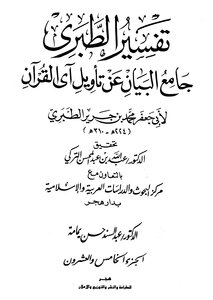 تفسير الطبري
جامع البيان عن تأويل آي القرآن
لأبي جعفر محمد بن جرير الطبري
(٢٢٤هـ - ٣١٠هـ)
تحقيق
الدكتور عبد الله بن عبد المحسن التركي
بالتعاون مع
مركز البحوث والدراسات العربية والإسلامية
بدار هجر
الدكتور عبد السند حسن يمامة
الجزء الخامس والعشرون
هجر
للطباعة والنشر والتوزيع والإعلان